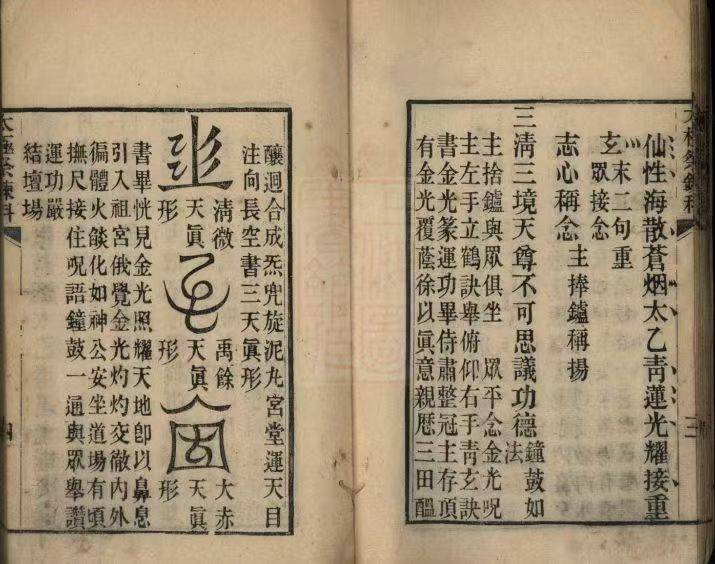 太極祭鍊科
三
仙性海散蒼烟太乙靑蓮光耀接重
玄 末二句重
眾接念
志心稱念 主捧鑪稱揚
三淸三境天尊不可思議功德 鐘鼓如法
主捨鑪與眾俱坐 眾平念金光咒
主左手立鶴訣舉俯仰右手靑玄訣
書金光篆運功畢侍肅整冠主存頂
有金光覆蔭徐以眞意親歷三田醞
釀迴合成炁兜旋泥丸宮堂運天目
注向長空書三天眞形
淸微天眞形
禹餘天眞形
大赤天眞形
書畢恍見金光照耀天地卽以鼻息
引入祖宮俄覺金光灼灼交徹內外
徧體火燄化如神公安坐道場有頃
撫尺接住咒語鐘鼓一通與眾舉讚
運功嚴
結壇場
太極祭鍊科
四